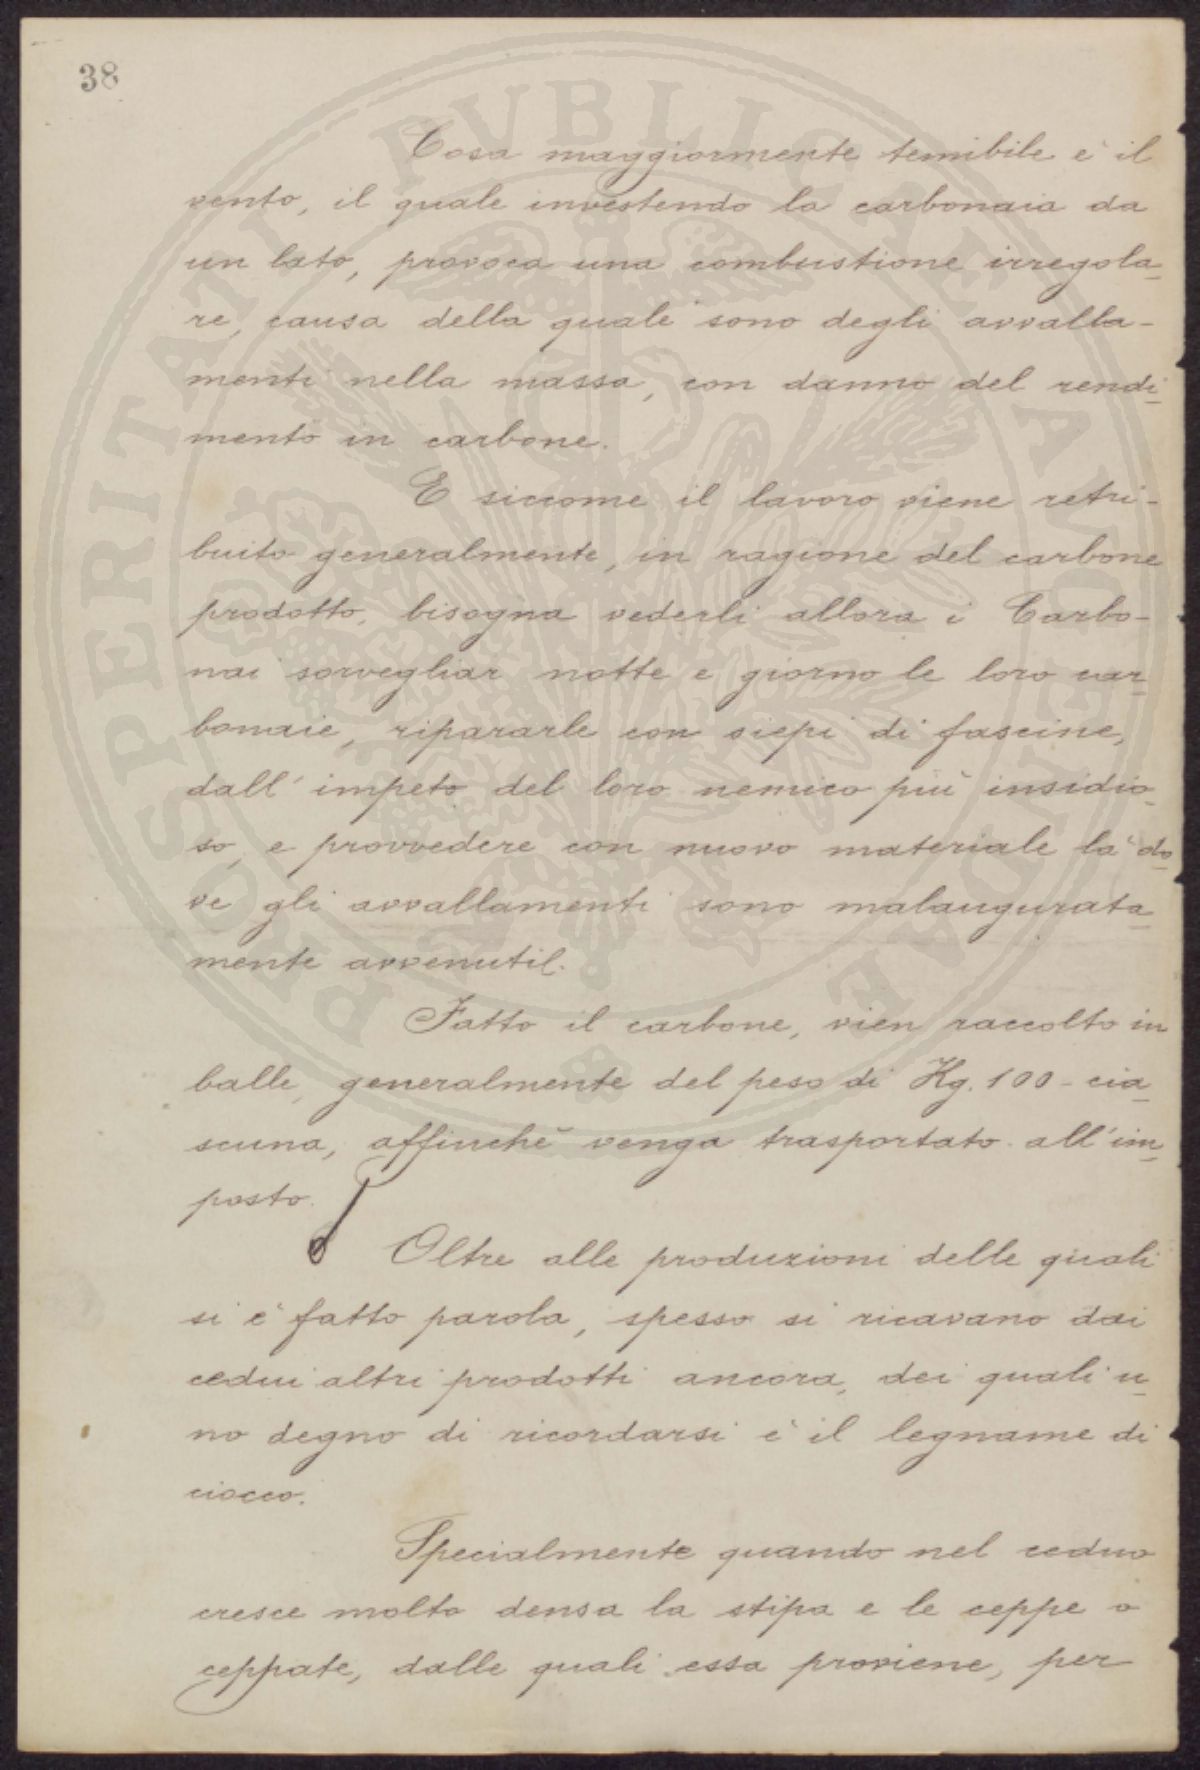 38
Cosa maggiormente temibile è il
vento, il quale investendo la carbonaia da
un lato, provoca una combustione irregola-
re, causa della quale sono degli avvalla-
menti nella massa, con danno del rendi-
mento in carbone.
E siccome il lavoro viene retri-
buito generalmente, in ragione del carbone
prodotto, bisogna vederli allora i Carbo-
nai sorvegliar notte e giorno le loro car-
bonaie, ripararle con siepi di fascine,
dall'impeto del loro nemico più insidio-
so, e provvedere con nuovo materiale là do-
ve gli avvallamenti sono malaugurata-
mente avvenuti.
Fatto il carbone, vien raccolto in
balle, generalmente del peso di Kg. 100 - cia-
scuna, affinchè venga trasportato all'im-
posto.
Oltre alle produzioni delle quali
si è fatto parola, spesso si ricavano dai
cedui altri prodotti ancora, dei quali u-
no degno di ricordarsi è il legname di
ciocco.
Specialmente quando nel ceduo
cresce molto densa la stipa e le ceppe o
ceppate, dalle quali essa proviene, per
PROSPERITATI PVBLICAE AVGENDAE